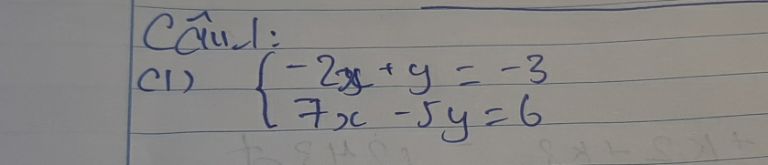 Câu 1:
(1) { -2x + y = -3
7x - 5y = 6